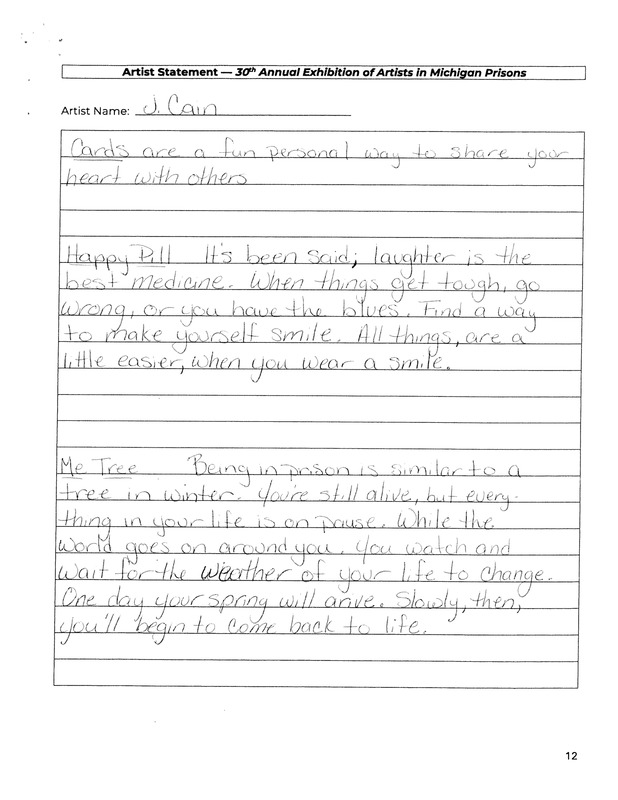 Artist Statement — 30th Annual Exhibition of Artists in Michigan Prisons
Artist Name: J. Cain
Cards are a fun personal way to share your
heart with others
Happy Pill It's been said; laughter is the
best medicine. When things get tough, go
wrong, or you have the blues. Find a way
to make yourself smile. All things, are a
little easier, when you wear a smile.
Me Tree Being in prison is similar to a
tree in winter. You're still alive, but every-
thing in your life is on pause. While the
world goes on around you. You watch and
wait for the weather of your life to change.
One day your spring will arive. Slowly, then,
you'll begin to come back to life.
12